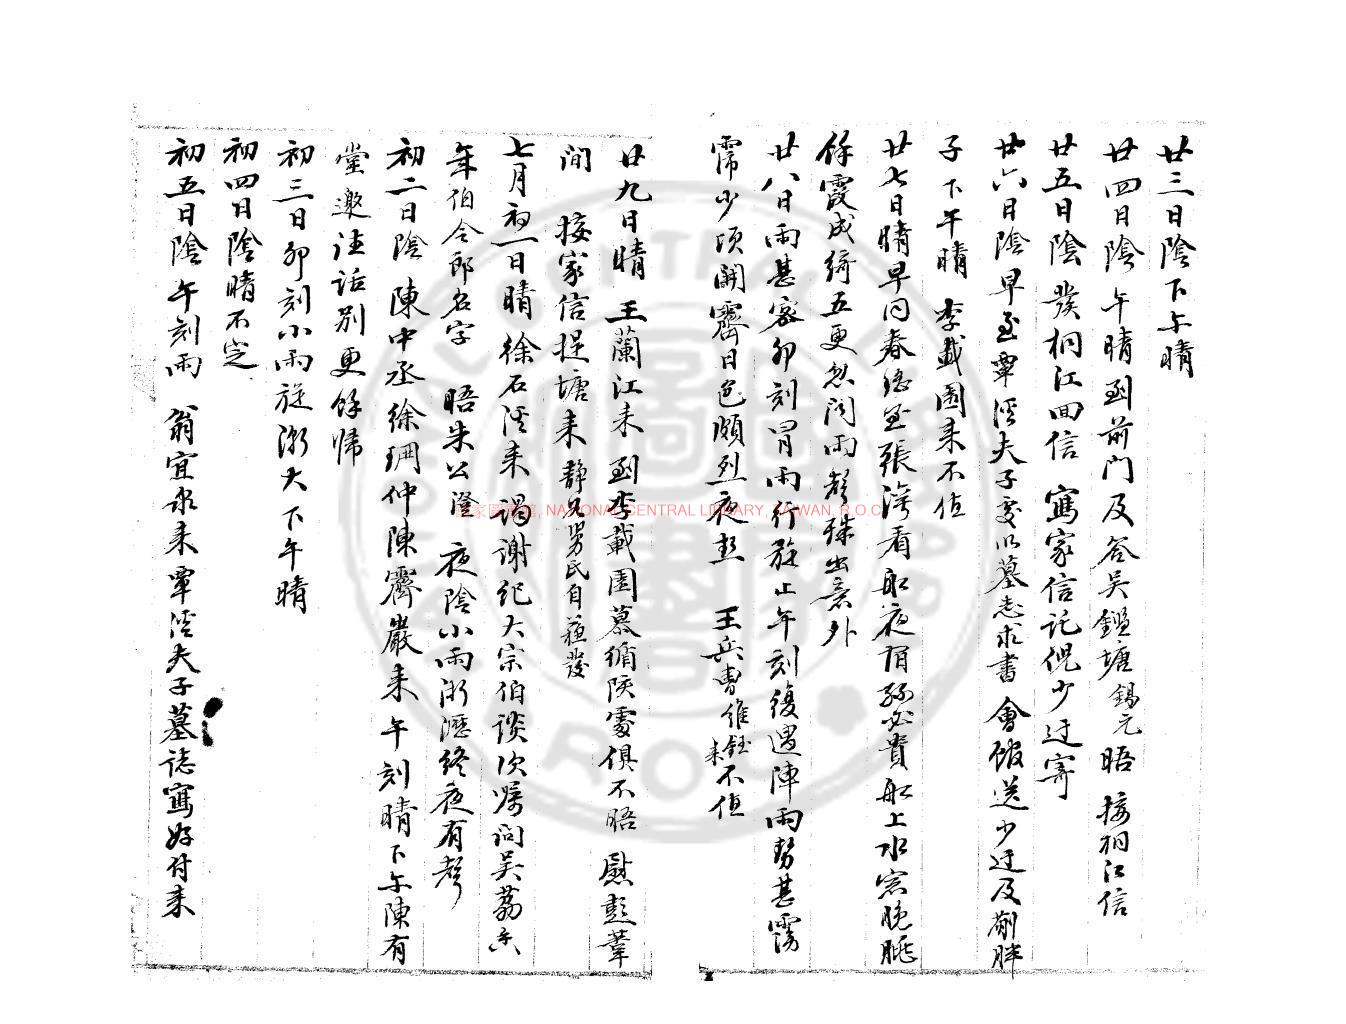 廿三日陰下午晴
廿四日陰午晴到前门及答吴鑑塘錫元晤 接桐江信
廿五日陰發桐江回信 寫家信託倪少迂寄
廿六日陰早至覃溪夫子處以墓志求書 會館送少迂及
子下午晴 李載園来不值
廿七日晴早同春 至張湾看船夜 貴船上水窓晚眺
餘霞成綺五更忽闻雨聲殊出意外
廿八日雨甚密卯刻冒雨行旋止午刻復遇陣雨势甚霶
霈少顷開霽日色頗烈夜熱 王兵曹維鈺来不值
廿九日晴 王蘭江来 到李載園慕循陔處俱不晤 慰彭葦
间 接家信提塘来 静兄舅氏自 發
七月初一日晴 徐石溪来 謁谢纪大宗伯談次嘱询吴荔
年伯令郎名字 晤朱公澄 夜陰小雨淅瀝終夜有聲
初二日陰 陳中丞徐珊仲陳霽嚴来 午刻晴下午陳有
堂邀 话别更餘归
初三日卯刻小雨旋漸大下午晴
初四日陰晴不定
初五日陰午刻雨 翁宜泉来覃溪夫子墓誌寫好付来
國家圖書館, NATIONAL CENTRAL LIBRARY, TAIWAN, R.O.C